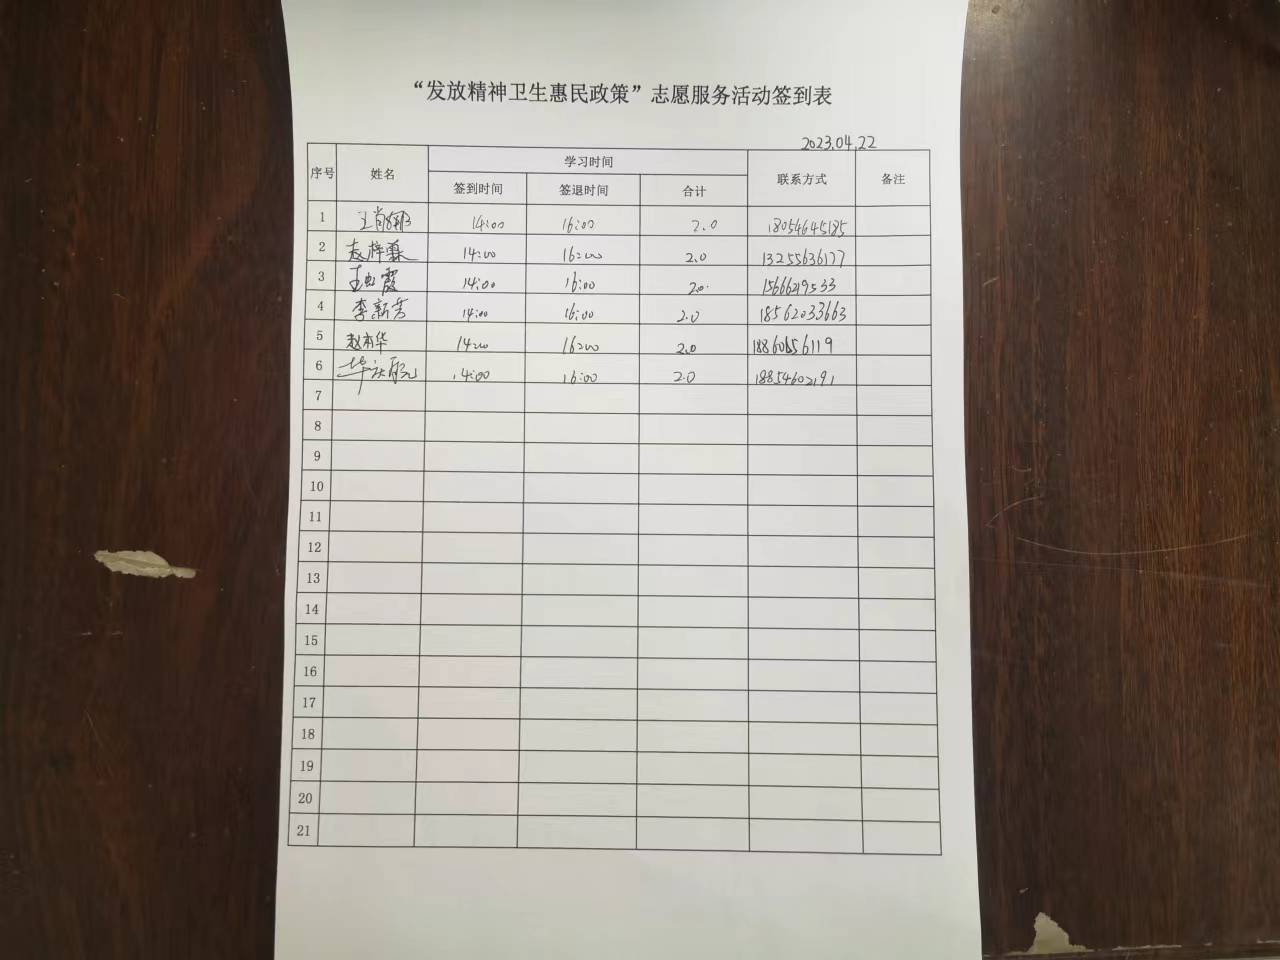 “发放精神卫生惠民政策”志愿服务活动签到表
2023.04.22
序号 姓名 学习时间 联系方式 备注
签到时间 签退时间 合计
1 王肖娜 14:00 16:00 2.0 18054645185
2 赵梓霖 14:00 16:00 2.0 13255636177
3 霞 14:00 16:00 2.0 15666219533
4 李新芳 14:00 16:00 2.0 18562033663
5 赵本华 14:00 16:00 2.0
6 14:00 16:00 2.0 18854602191
7
8
9
10
11
12
13
14
15
16
17
18
19
20
21